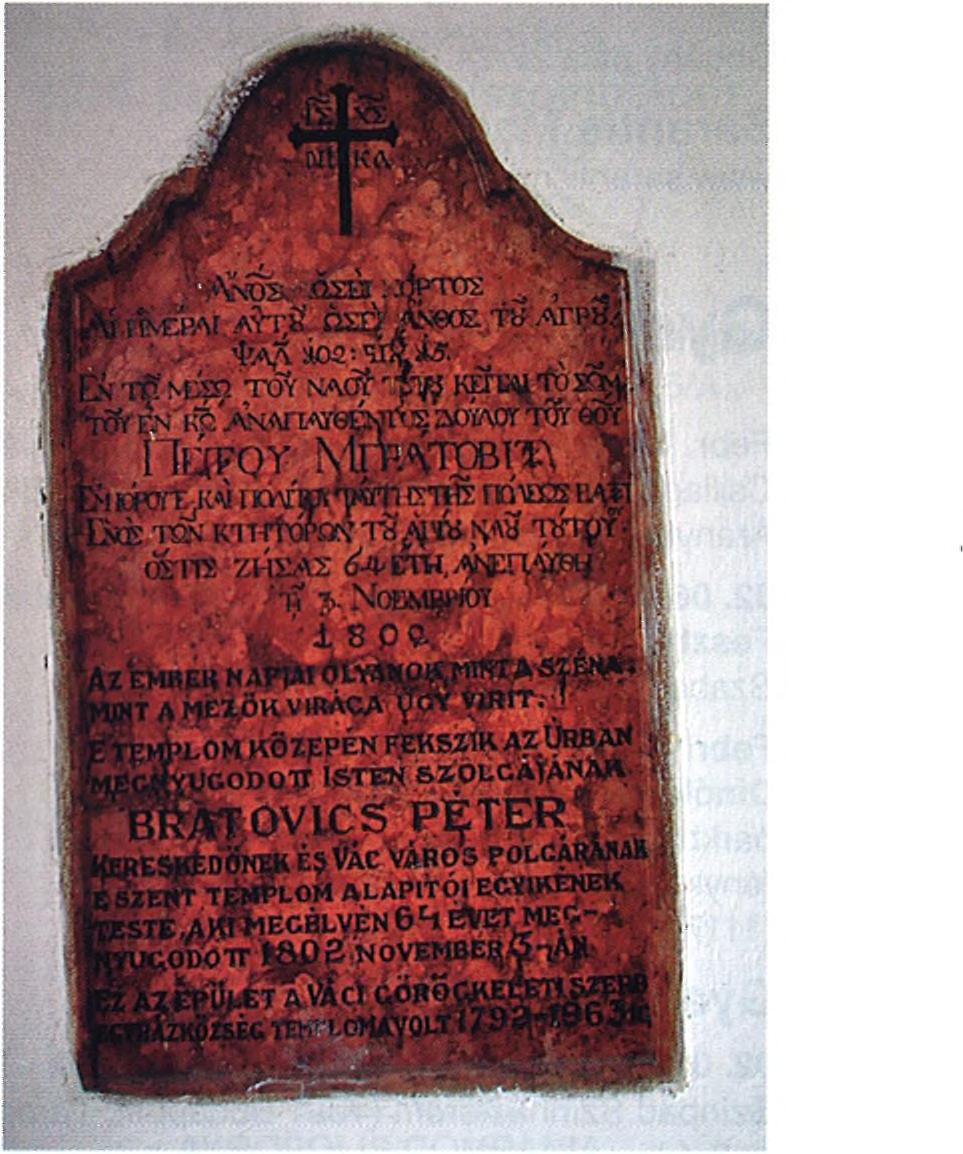 ΙΣ ΧΣ
ΝΙ ΚΑ
ἌΝΟΣ ὩΣΕῚ ΧΌΡΤΟΣ
ΑἹ ἩΜΈΡΑΙ ΑΥΤȢ͂ ΩΣΕῚ ἌΝΘΟΣ ΤȢ͂ ἈΓΡȢ͂.
ΨΑΛ 102:
ΕΝ ΤΩ͂ ΜΈΣΩ ΤΟΥ͂ ΝΑΟΥ͂ ΚΕΙ͂ΤΑΙ ΤῸ ΣΩ͂Μ
ΤΟΥ͂ ΕΝ ΚΩ͂ ἈΝΑΠΑΥΘΈΝΤΟΣ ΔΟΎΛΟΥ ΤΟΥ͂ ΘΟΥ͂
ΠΈΤΡΟΥ ΜΠΡΆΤΟΒΙΤΖ
ΚΑῚ ΠΟΛΊΤΟΥ ΤΑΎΤΗΣ ΤΗ͂Σ ΠΌΛΕΩΣ ΒΑΤΖ
ΕΝΟΣ ΤΩ͂Ν ΚΤΗΤΌΡΩΝ ΤȢ͂ ἉΓΊȢ ΝΑȢ͂ ΤȢ́ΤΟΥ
ὍΣΤΙΣ ΖΉΣΑΣ 64 ΈΤΗ, ἈΝΕΠΑΎΘΗ
ΤΗ͂ 3. ΝΟΕΜΒΡΊΟΥ
1802
AZ EMBER NAPJAI OLYANOK, MINT A SZÉNA.
MINT A MEZŐK VIRÁGA ÚGY VIRIT.
E TEMPLOM KÖZEPÉN FEKSZIK AZ ÚRBAN
MEGNYUGODOTT ISTEN SZOLGÁJÁNAK
BRATOVICS PÉTER
KERESKEDŐNEK ÉS VÁC VÁROS POLGÁRÁNAK
E SZENT TEMPLOM ALAPITÓI EGYIKÉNEK
TESTE, AKI MEGÉLVÉN 64 ÉVET MEG-
NYUGODOTT 1802 NOVEMBER 3-ÁN
EZ AZ ÉPÜLET A VÁCI GÖRÖGKELETI SZERB
EGYHÁZKÖZSÉG TEMPLOMA VOLT 1792-1863IG